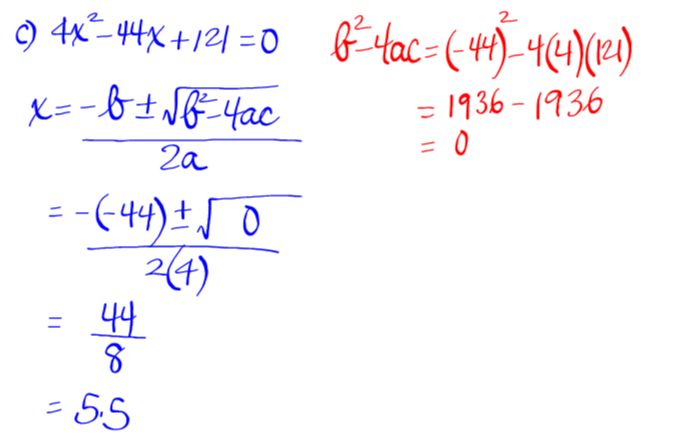 c) 4x² - 44x + 121 = 0
x = -b ± √b² - 4ac
2a
= -(-44) ± √0
2(4)
= 44
8
= 5.5
b² - 4ac = (-44)² - 4(4)(121)
= 1936 - 1936
= 0